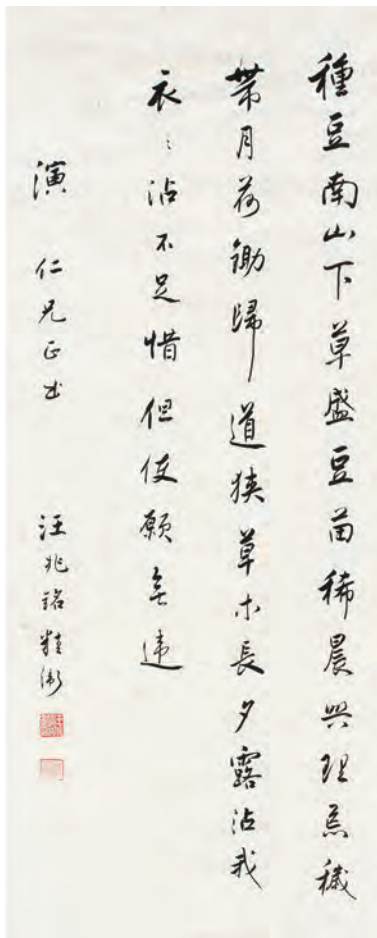 種豆南山下草盛豆苗稀晨興理荒穢
帶月荷鋤歸道狹草木長夕露沾我
衣〻沾不足惜但使願無違
演 仁兄正 汪兆銘精衛